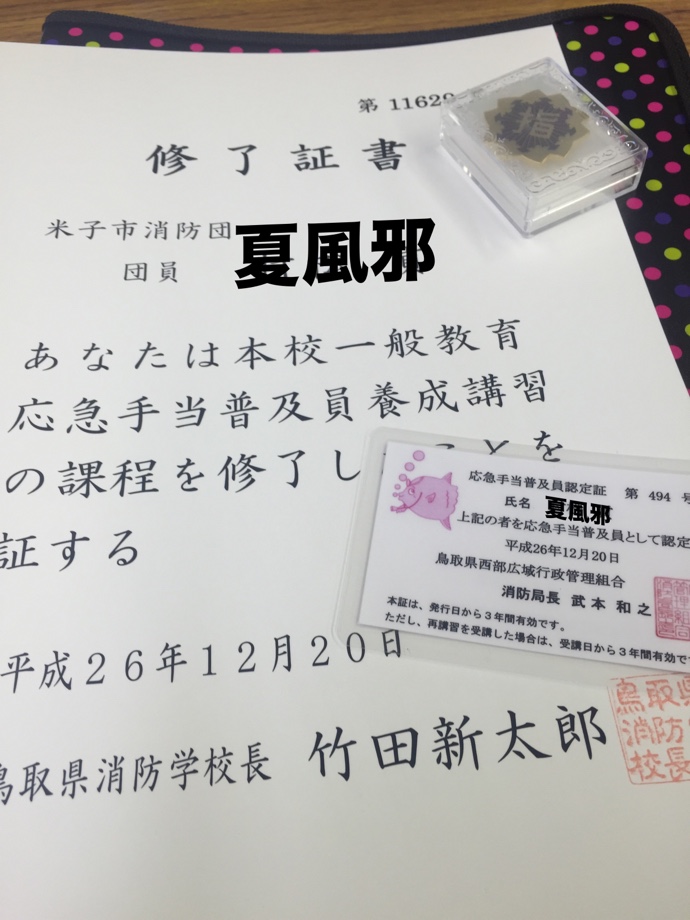 第 11629
修了証書
米子市消防団
団員 夏風邪
あなたは本校一般教育
応急手当普及員養成講習
の課程を修了したことを
証する
平成26年12月20日
鳥取県消防学校長 竹田新太郎
鳥取県
消防
校長
指
応急手当普及員認定証 第 494 号
氏名 夏風邪
上記の者を応急手当普及員として認定
平成26年12月20日
鳥取県西部広域行政管理組合
消防局長 武本 和之
本証は、発行日から3年間有効です。
ただし、再講習を受講した場合は、受講日から3年間有効で